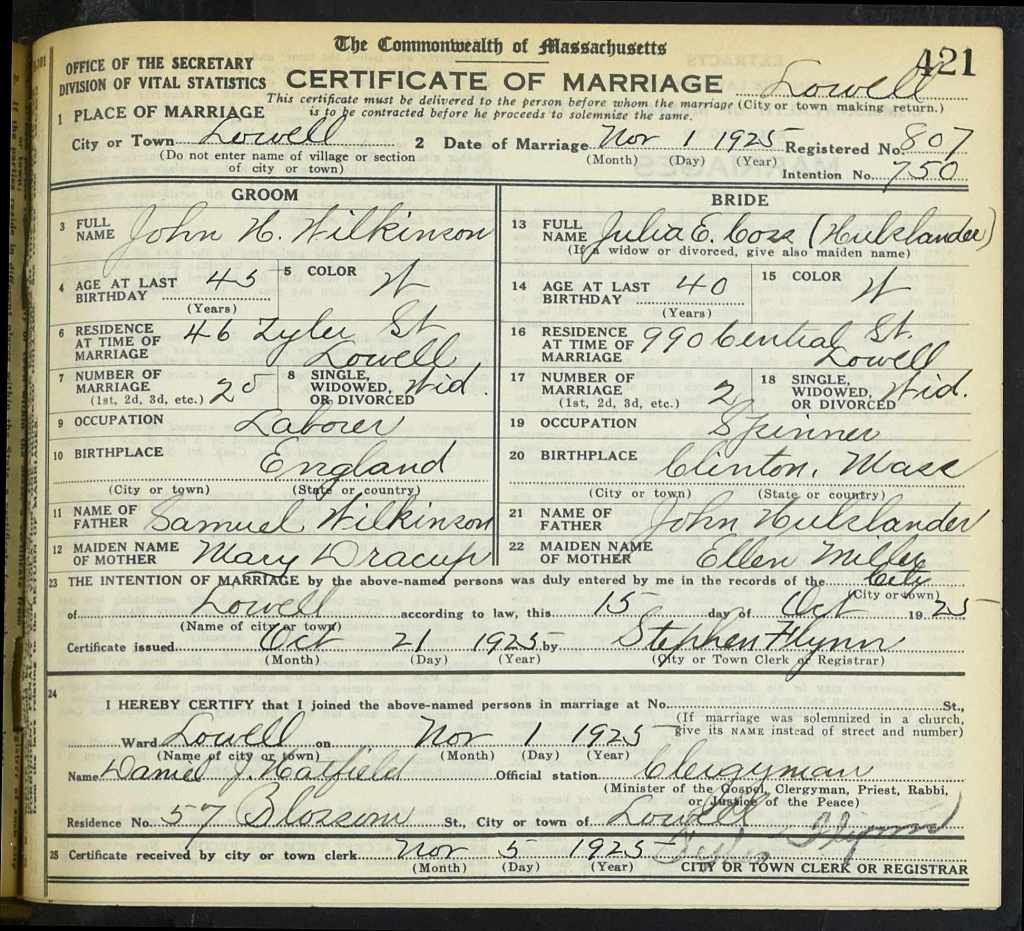 The Commonwealth of Massachusetts
421
OFFICE OF THE SECRETARY
DIVISION OF VITAL STATISTICS
CERTIFICATE OF MARRIAGE Lowell
This certificate must be delivered to the person before whom the marriage (City or town making return.)
is to be contracted before he proceeds to solemnize the same.
1 PLACE OF MARRIAGE
City or Town Lowell 2 Date of Marriage Nov 1 1925 Registered No. 807
(Do not enter name of village or section (Month) (Day) (Year)
of city or town) Intention No. 750
GROOM
3 FULL NAME John H. Wilkinson
4 AGE AT LAST BIRTHDAY 45 5 COLOR W
(Years)
6 RESIDENCE AT TIME OF MARRIAGE 46 Tyler St
Lowell
7 NUMBER OF MARRIAGE 2d 8 SINGLE, WIDOWED, OR DIVORCED Wid.
(1st, 2d, 3d, etc.)
9 OCCUPATION Laborer
10 BIRTHPLACE England
(City or town) (State or country)
11 NAME OF FATHER Samuel Wilkinson
12 MAIDEN NAME OF MOTHER Mary Dracup
BRIDE
13 FULL NAME Julia E. Coss (Hulslander)
(If a widow or divorced, give also maiden name)
14 AGE AT LAST BIRTHDAY 40 15 COLOR W
(Years)
16 RESIDENCE AT TIME OF MARRIAGE 990 Central St.
Lowell
17 NUMBER OF MARRIAGE 2 18 SINGLE, WIDOWED, OR DIVORCED Wid.
(1st, 2d, 3d, etc.)
19 OCCUPATION Spinner
20 BIRTHPLACE Clinton, Mass
(City or town) (State or country)
21 NAME OF FATHER John Hulslander
22 MAIDEN NAME OF MOTHER Ellen Miller
23 THE INTENTION OF MARRIAGE by the above-named persons was duly entered by me in the records of the City
(City or town)
of Lowell according to law, this 15 day of Oct 1925
(Name of city or town)
Certificate issued Oct 21 1925 by Stephen Flynn
(Month) (Day) (Year) (City or Town Clerk or Registrar)
24
I HEREBY CERTIFY that I joined the above-named persons in marriage at No. St.,
(If marriage was solemnized in a church,
give its NAME instead of street and number)
Ward Lowell on Nov 1 1925
(Name of city or town) (Month) (Day) (Year)
Name Daniel J. Hatfield Official station Clergyman
(Minister of the Gospel, Clergyman, Priest, Rabbi,
or Justice of the Peace)
Residence No. 57 Blossom St., City or town of Lowell
25 Certificate received by city or town clerk Nov 5 1925 Flynn
(Month) (Day) (Year) CITY OR TOWN CLERK OR REGISTRAR